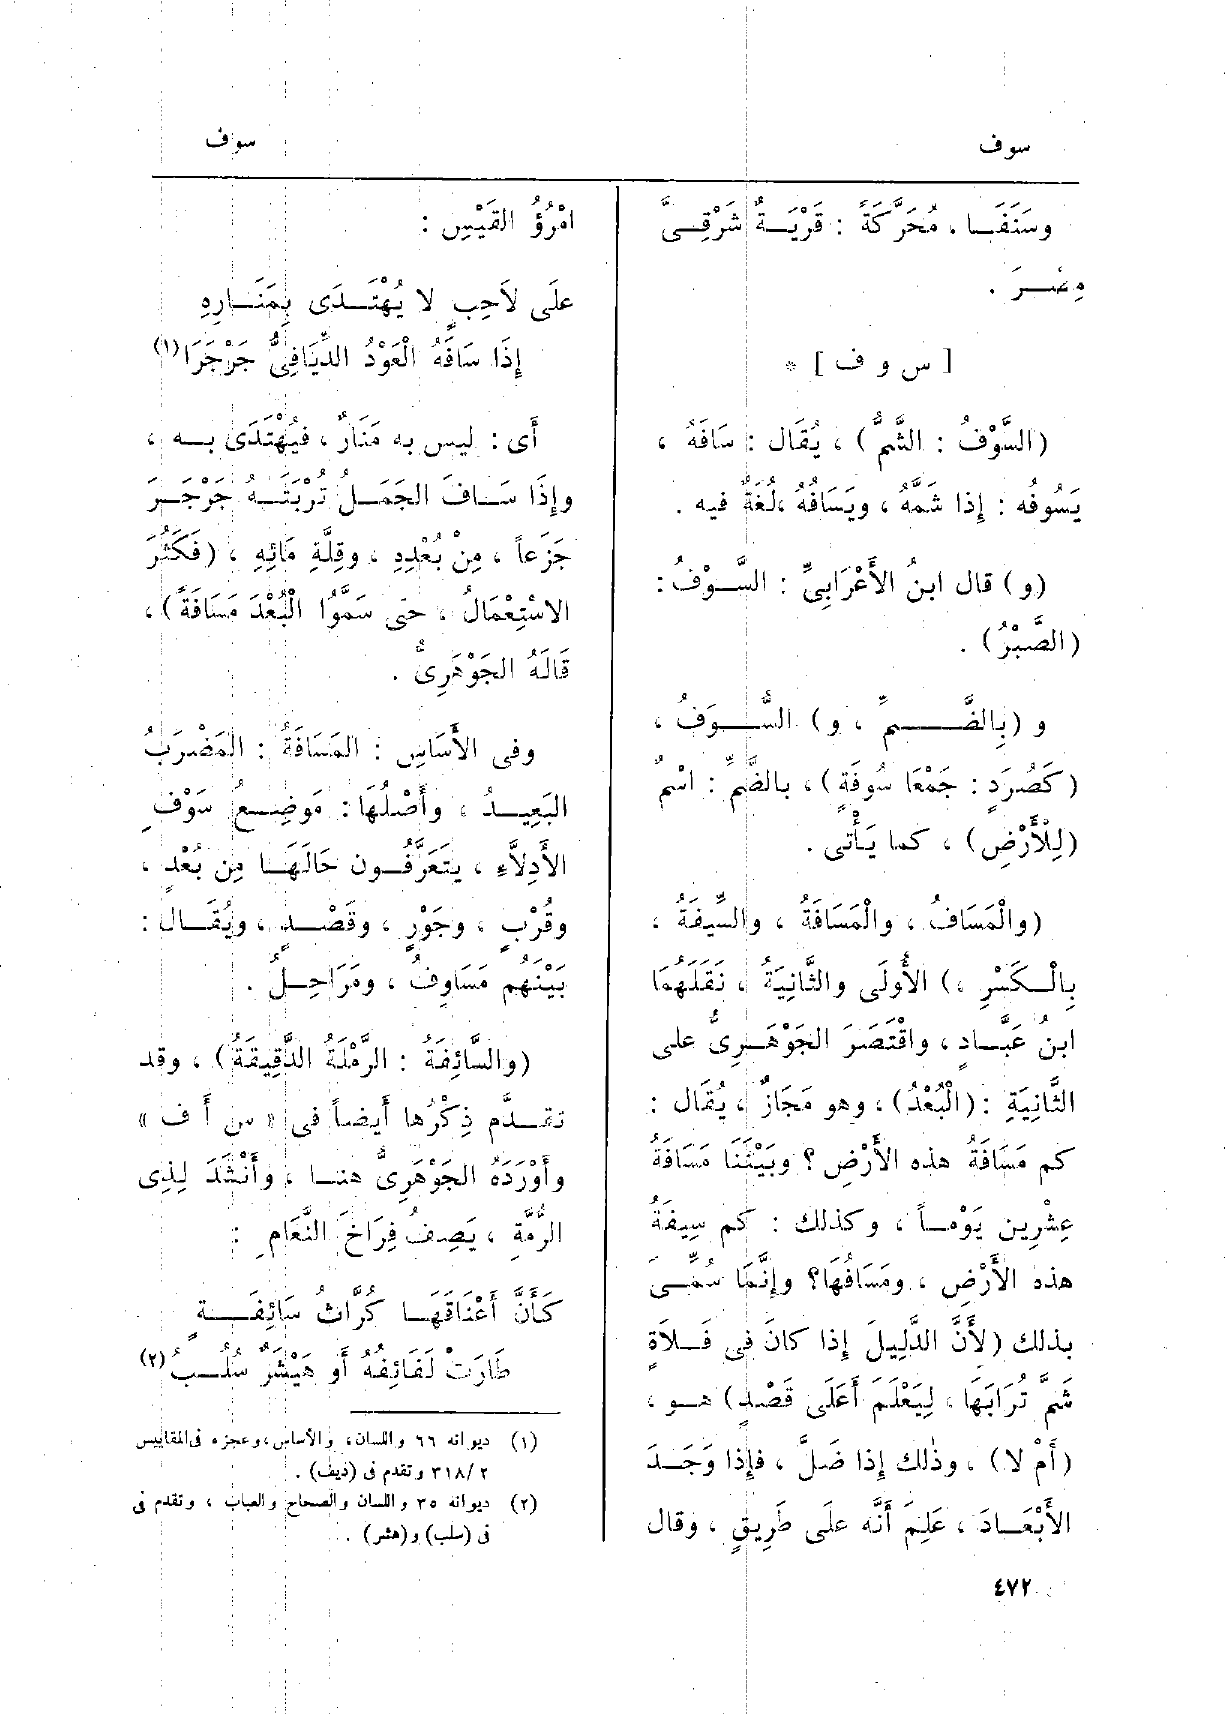 سوف
سوف
وسَنَفَا ، مُحَرَّكَةً : قَرْيَةٌ شَرْقِىَّ
مِصْرَ .
[ س و ف ] *
(السَّوْفُ : الشَّمُّ) ، يُقَال : سَافَهُ ،
يَسُوفُه : إِذا شَمَّهُ ، ويَسَافُهُ ،لُغَةٌ فيه .
(و) قال ابنُ الأَعْرَابِىِّ : السَّوْفُ :
(الصَّبْرُ) .
و (بِالضَّمِّ ، و) السُّوَفُ ،
(كَصُرَدٍ : جَمْعَا سُوفَةٍ) ، بالضَّمِّ : اسْمٌ
(لِلْأَرْضِ) ، كما يَأْتى .
(والْمَسَافُ ، والْمَسَافَةُ ، والسِّيفَةُ ،
بِالْكَسْرِ ،) الأُولَى والثَّانِيَةُ ، نَقَلَهُمَا
ابنُ عَبَّادٍ ، واقْتَصَرَ الجَوْهَرِىُّ على
الثَّانِيَةِ :(الْبُعْدُ) ، وهو مَجَازٌ ، يُقَال :
كم مَسَافَةُ هذه الأَرْضِ ؟ وبَيْنَنَا مَسَافَةُ
عِشْرِين يَوْماً ، وكذلك : كم سِيفَةُ
هذه الأَرْضِ ، ومَسَافُهَا؟ وإِنَّمَا سُمِّىَ
بذلك (لأَنَّ الدَّلِيلَ إِذا كانَ فى فَلَاةٍ
شَمَّ تُرَابَهَا ، لِيَعْلَمَ أَعَلَى قَصْدٍ) هو ،
(أَمْ لا) ، وذٰلك إِذا ضَلَّ ، فإِذا وَجَدَ
الأَبْعَادَ ، عَلِمَ أَنَّه علَى طَرِيقٍ ، وقال
امْرُؤُ القَيْسِ :
علَى لاَحِبٍ لا يُهْتَدَى بِمَنَارِهِ
إِذَا سَافَهُ الْعَوْدُ الدِّيَافِىُّ جَرْجَرَا(١)
أَى : ليس به مَنَارٌ ، فيُهْتَدَى به ،
وإِذَا سَافَ الجَمَلُ تُرْبَتَهُ جَرْجَرَ
جَزَعاً ، مِنْ بُعْدِهِ ، وقِلَّةِ مَائِهِ ، (فَكَثُرَ
الاسْتِعْمَالُ ، حتى سَمَّوُا الْبُعْدَ مَسَافَةً) ،
قَالَهُ الجَوْهَرِىُّ .
وفى الأَسَاسِ : المَسَافَةُ : المَضْرَبُ
البَعِيدُ ، وأَصْلُهَا : مَوضِعُ سَوْفِ
الأَدِلاَّءِ ، يتَعَرَّفُون حَالَهَا مِن بُعْدٍ ،
وقُرْبٍ ، وجَوْرٍ ، وقَصْدٍ ، ويُقَال :
بَيْنَهُم مَسَاوِفُ ، ومَرَاحِلُ .
(والسَّائِفَةُ : الرَّمْلَةُ الدَّقِيقَةُ) ، وقد
تقدَّم ذِكْرُها أَيضاً فى « س أ ف »
وأَوْرَدَهُ الجَوْهَرِىُّ هنا ، وأَنْشَدَ لِذِى
الرُّمَّةِ ، يَصِفُ فِرَاخَ النَّعَامِ :
كَأَنَّ أَعْنَاقَهَا كُرَّاثُ سَائِفَةٍ
طَارَتْ لَفَائِفُهُ أَو هَيْشَرٌ سُلُبُ(٢)
(١) ديوانه ٦٦ واللسان، والأساس،وعجزه فى المقاييس
٣١٨/٢ وتقدم فى (ديف) .
(٢) ديوانه ٣٥ واللسان والصحاح والعباب ، وتقدم فى
فى (سلب) و(هشر) .
٤٧٢